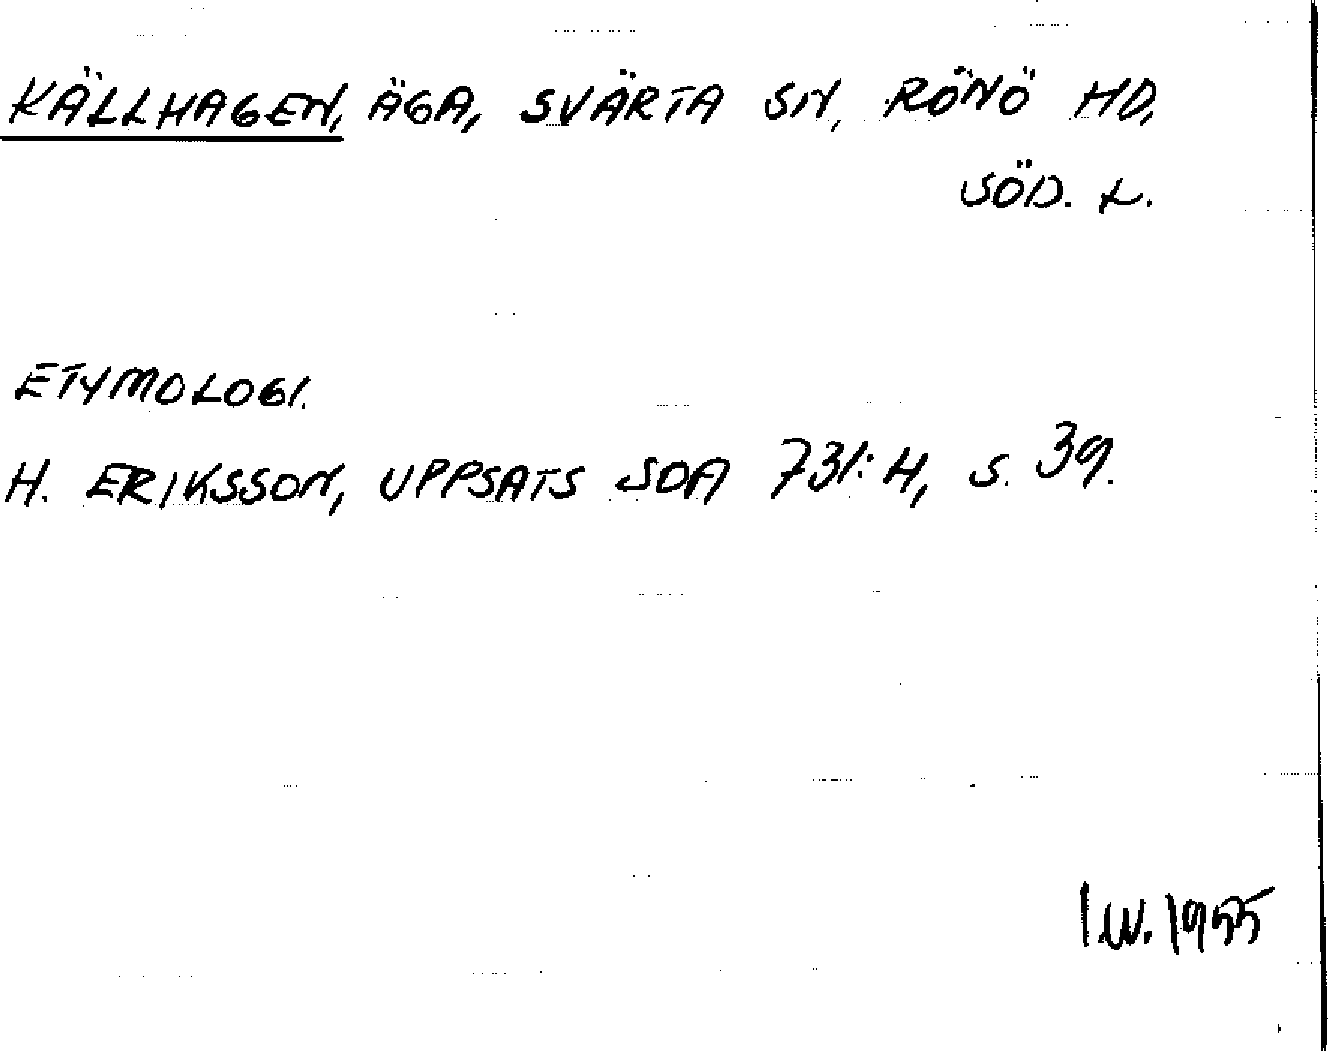 KÄLLHAGEN, ÄGA, SVÄRTA SN, RÖNÖ HD,
SÖD. L.
ETYMOLOGI.
H. ERIKSSON, UPPSATS SOA 731:4, S. 39.
I W. 1955